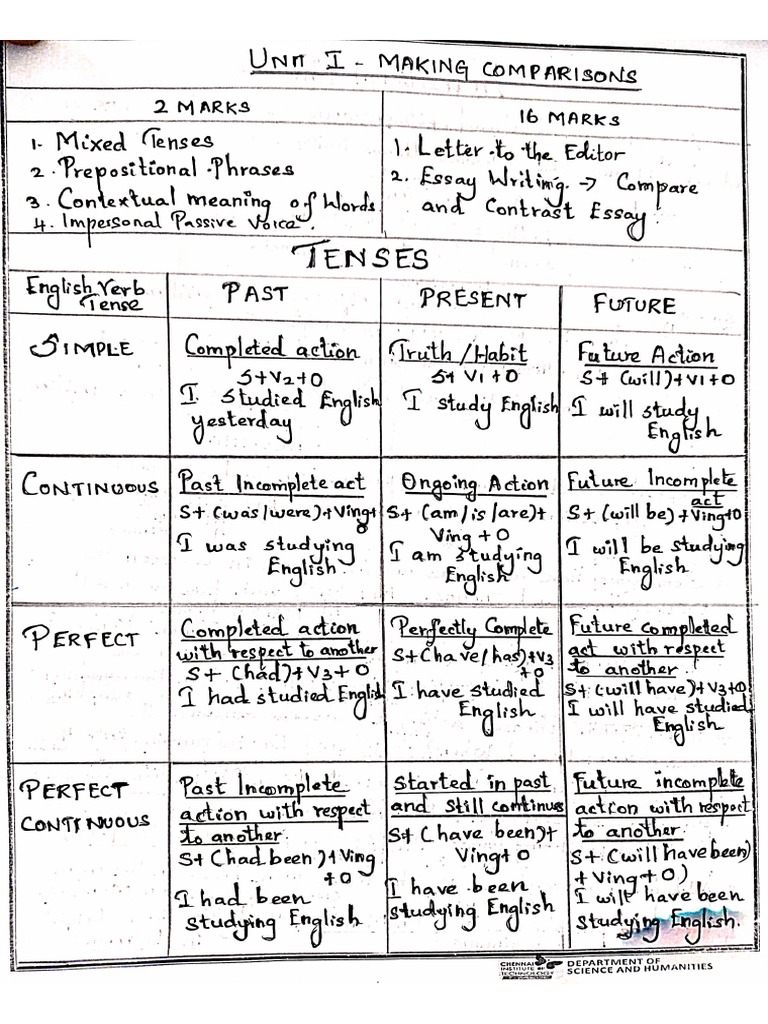 UNIT I - MAKING COMPARISONS
2 MARKS
1. Mixed Tenses
2. Prepositional Phrases
3. Contextual meaning of Words
4. Impersonal Passive Voice.
16 MARKS
1. Letter to the Editor
2. Essay Writing. → Compare
and Contrast Essay.
TENSES
English Verb
Tense
PAST
PRESENT
FUTURE
SIMPLE
Completed action
S+V2+O
I studied English
yesterday
Truth/Habit
S+V1+O
I study English
Future Action
S+(will)+V1+O
I will study
English
CONTINUOUS
Past Incomplete act
S+(was/were)+Ving+
O
I was studying
English.
Ongoing Action
S+(am/is/are)+
Ving+O
I am studying
English
Future Incomplete
act
S+(will be)+Ving+O
I will be studying
English
PERFECT
Completed action
with respect to another
S+(had)+V3+O
I had studied English
Perfectly Complete
S+(have/has)+V3
+O
I have studied
English
Future completed
act with respect
to another
S+(will have)+V3+O
I will have studied
English
PERFECT
CONTINUOUS
Past Incomplete
action with respect
to another.
S+(had been)+Ving
+O
I had been
studying English
Started in past
and still continues
S+(have been)+
Ving+O
I have been
studying English
Future incomplete
action with respect
to another
S+(will have been)
+Ving+O)
I will have been
studying English.
CHENNAI
INSTITUTE OF
TECHNOLOGY
DEPARTMENT OF
SCIENCE AND HUMANITIES